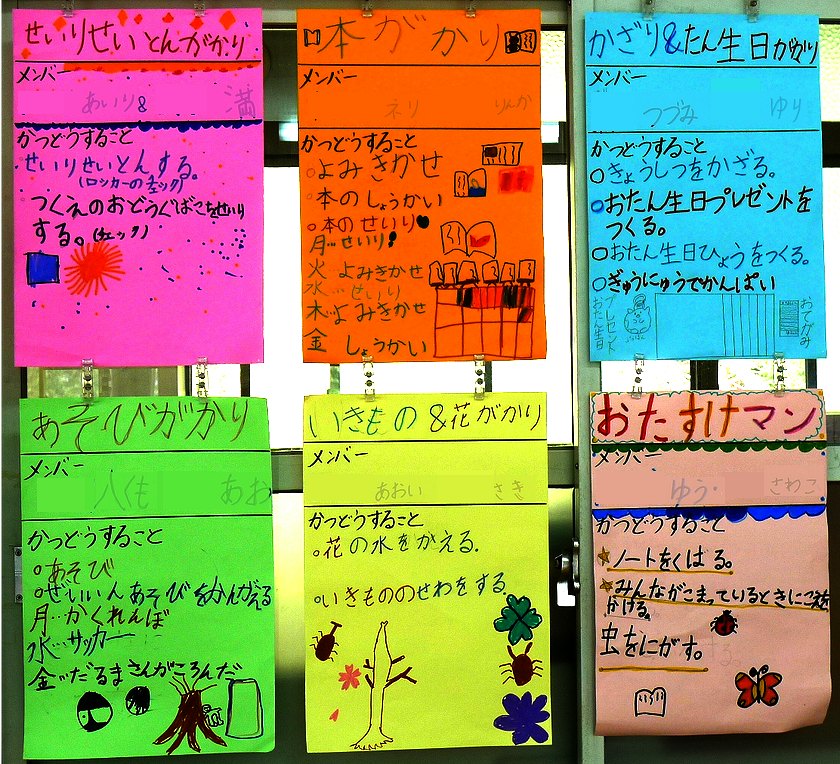 せいりせいとんがかり
メンバー
あいり& 満
かつどうすること
せいりせいとんする。
(ロッカーのチェック)
つくえのおどうぐばこをせいり
する。(チェック)
本がかり
メンバー
ネリ りんか
かつどうすること
○よみきかせ
○本のしょうかい
○本のせいり
月…せいり
火 よみきかせ
水…せいり
木…よみきかせ
金 しょうかい
かざり&たん生日がかり
メンバー
つづみ ゆり
かつどうすること
○きょうしつをかざる。
○おたん生日プレゼントを
つくる。
○おたん生日ひょうをつくる。
○ぎゅうにゅうでかんぱい
おたん生日
プレゼント
おてがみ
あそびがかり
メンバー
八くも あお
かつどうすること
○あそび
○ぜいいんあそびをかんがえる
月…かくれんぼ
水…サッカー
金…だるまさんがころんだ
いきもの&花がかり
メンバー
あおい さき
かつどうすること
○花の水をかえる.
○いきもののせわをする
おたすけマン
メンバー
ゆう・ さわこ
かつどうすること
☆ノートをくばる。
☆みんながこまっているときにこえを
かける。
虫をにがす。